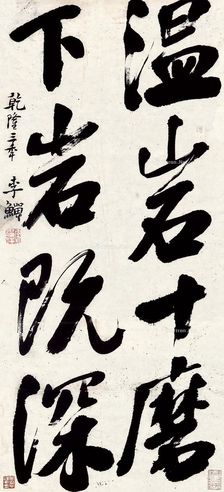 温岩十磨
下岩既深
乾隆三年 李鱓